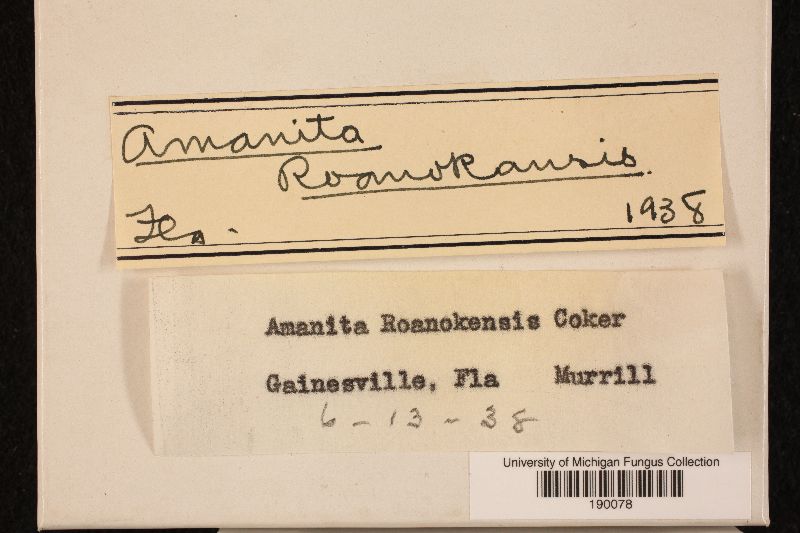 Amanita
Roanokansis.
Fla. 1938
Amanita Roanokensis Coker
Gainesville, Fla Murrill
6-13-38
University of Michigan Fungus Collection
190078